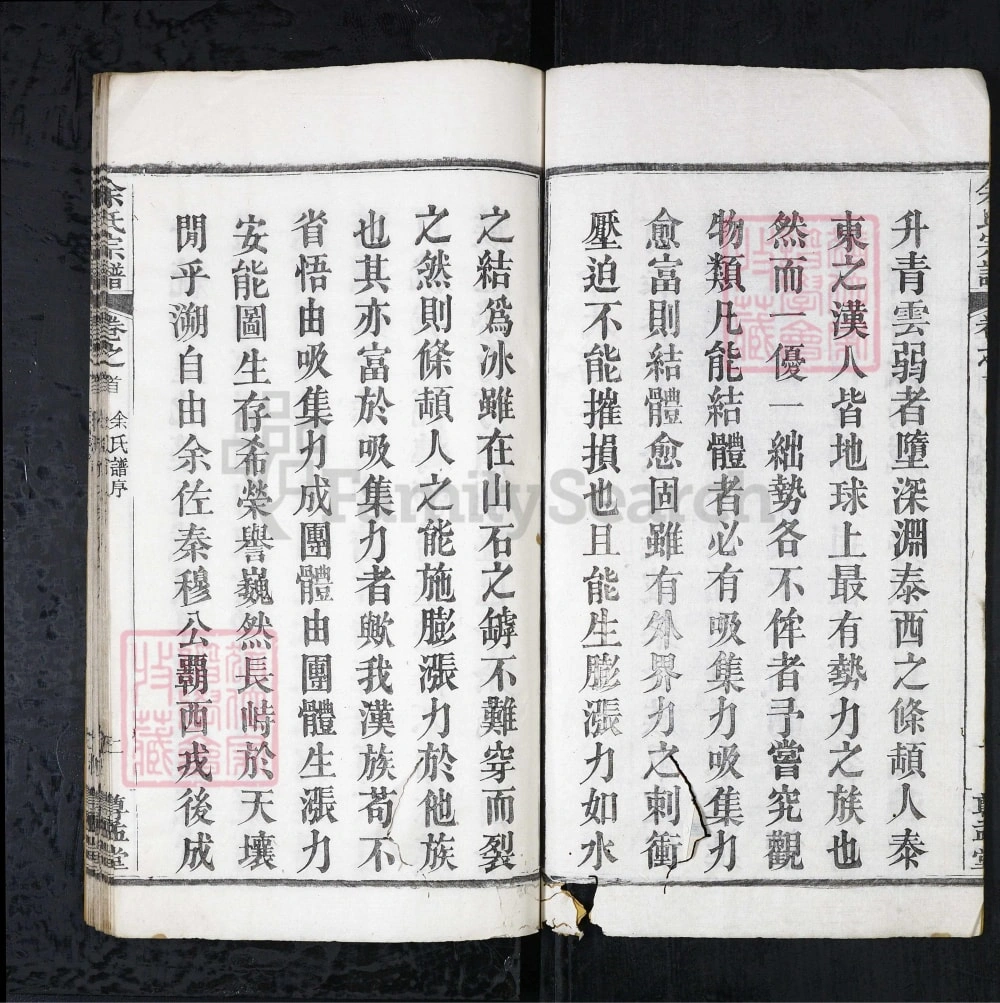 升青雲弱者墮深淵泰西之條頓人泰
東之漢人皆地球上最有勢力之族也
然而一優一絀勢各不侔者予嘗究觀
物類凡能結體者必有吸集力吸集力
愈富則結體愈固雖有外界力之刺衝
壓迫不能摧損也且能生膨漲力如水
之結爲冰雖在山石之罅不難穿而裂
之然則條頡人之能施膨漲力於他族
也其亦富於吸集力者歟我漢族苟不
省悟由吸集力成團體由團體生漲力
安能圖生存希榮譽巍然長峙於天壤
閒乎溯自由余佐秦穆公覇西戎後成
余氏宗譜
卷之首
余氏譜序
FamilySearch